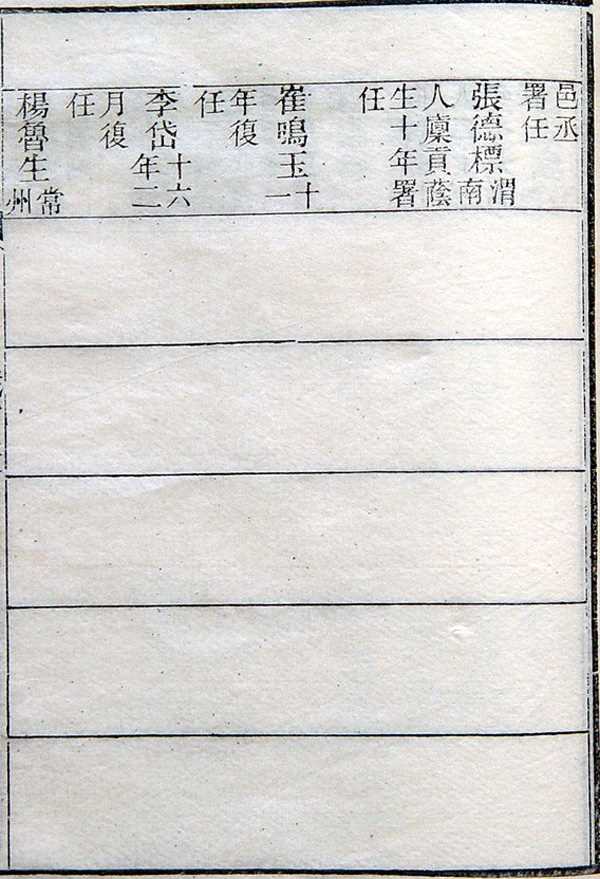 邑丞
署任
張德標渭南
人廩貢蔭
生十年署
任
崔鳴玉十一
年復
任
李岱十六年二
月復
任
楊魯生常州